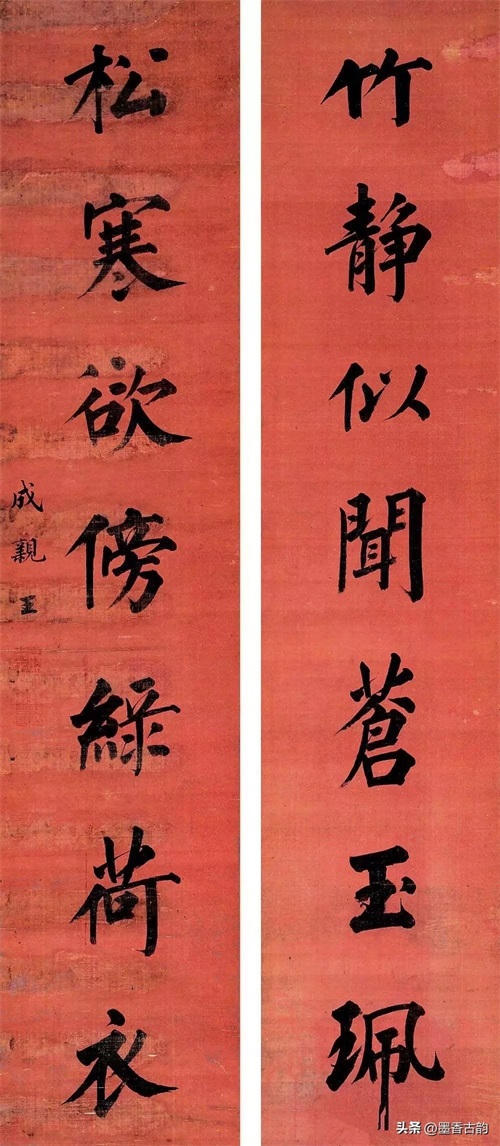 竹靜似聞蒼玉珮
松寒欲傍綠荷衣
成親王
头条 @墨香古韵